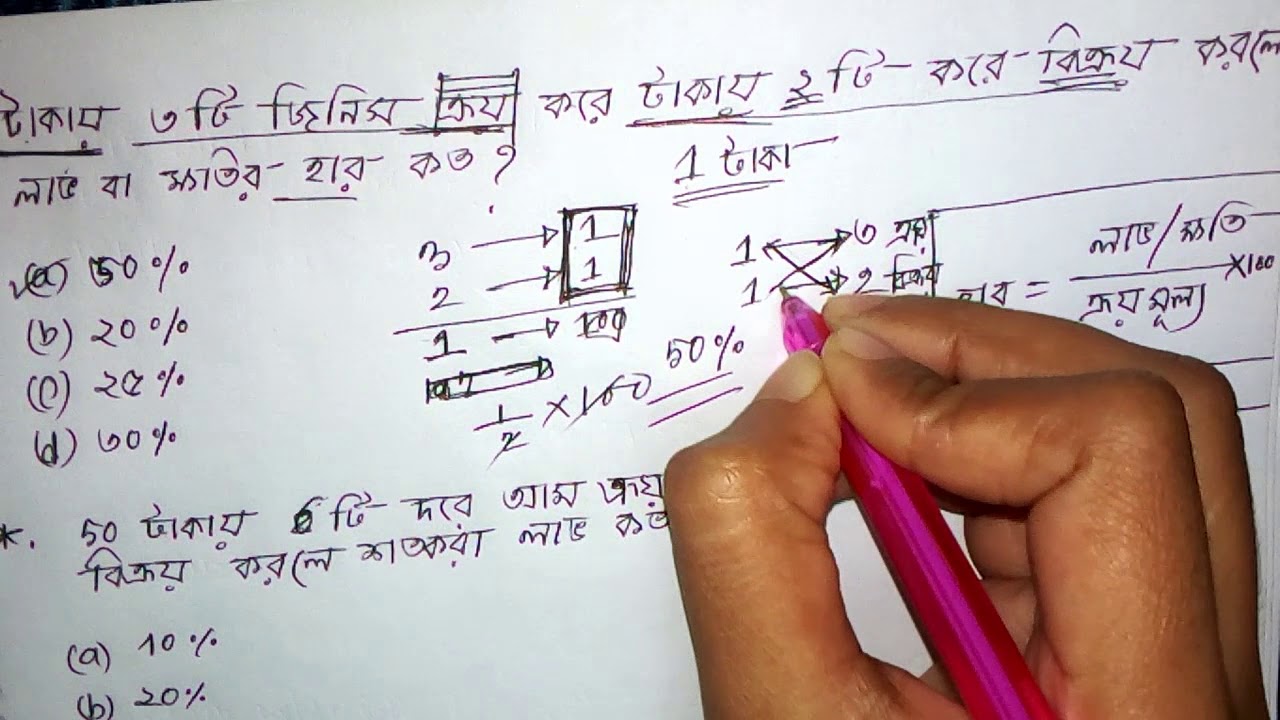 টাকায় ৩টি জিনিস ক্রয় করে টাকায় ২টি করে বিক্রয় করলে
লাভ বা ক্ষতির হার কত ?
1 টাকা
(a) 50%
(b) ২০%
(c) ২৫%
(d) ৩০%
3 → 1
2 → 1
1 → 100
1/2 × 100
50%
1 ৩ ক্রয়
1 ২ বিক্রয়
হার = লাভ/ক্ষতি / ক্রয় মূল্য × 100
*. 50 টাকায় 6টি দরে আম ক্রয়
বিক্রয় করলে শতকরা লাভ কত
(a) 10%
(b) 20%